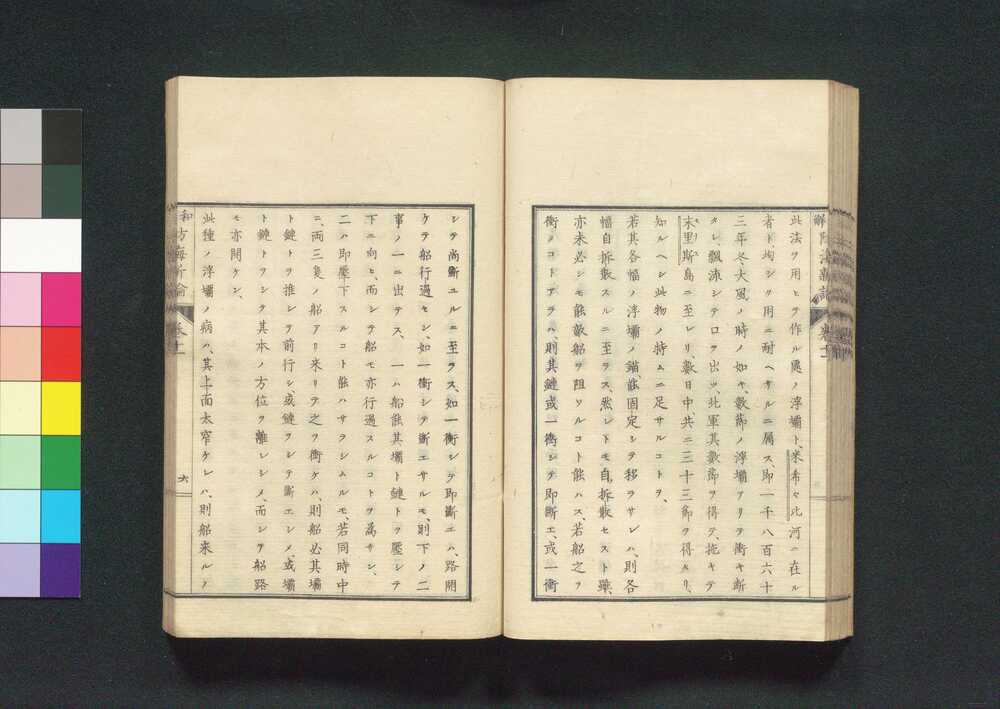 此法ヲ用ヒヲ作ル處ノ浮壩ト、米希々比河ニ在ル
者ト、均シク用ニ耐ヘサルニ属ス即一千八百六十
三年冬大風ノ時ノ如キ、數節ノ浮壩アリヲ衝キ斷
タレ、飄沛シテ口ヲ出ツ、北軍其數節ヲ得テ、拖キテ
末里斯島ニ至レリ、數日中、共ニ三十三節ヲ得タリ、
知ルヘシ此物ノ持ムニ足サルコトヲ、
若其各幅ノ浮壩ノ錨、能固定シテ移ラサレハ、則各
幅自拆散スルニ至ラス、然レトモ自拆散セスト雖、
亦未必シモ能敵船ヲ阻ツルコト能ハス、若船之ヲ
衝クコトアラハ、則其鏈或一衝シテ即斷エ、或一衝
シテ尚斷ユルニ至ラス、如一衝シテ即斷エハ、路開
ケテ船行過セン、如一衝シテ斷エサルモ、則下ノ二
事ノ一ニ出テス、一ハ船能其壩ト鏈トヲ壓シテ
下ニ向ヒ、而シテ船モ亦行過スルコトヲ為サン、
二ハ即壓下スルコト能ハサラシムルモ若同時中
ニ、両三隻ノ船アリ来リテ之ヲ衝ケハ、則船必其壩
ト鏈トヲ推シテ前行シ、或鏈ヲシテ斷エシメ、或壩
ト鏈トヲシテ其本ノ方位ヲ離レシメ、而シテ船路
モ亦開ケン、
此種ノ浮壩ノ病ハ、其上面太窄ケレハ、則船来ルノ
防海新論
卷十二
六